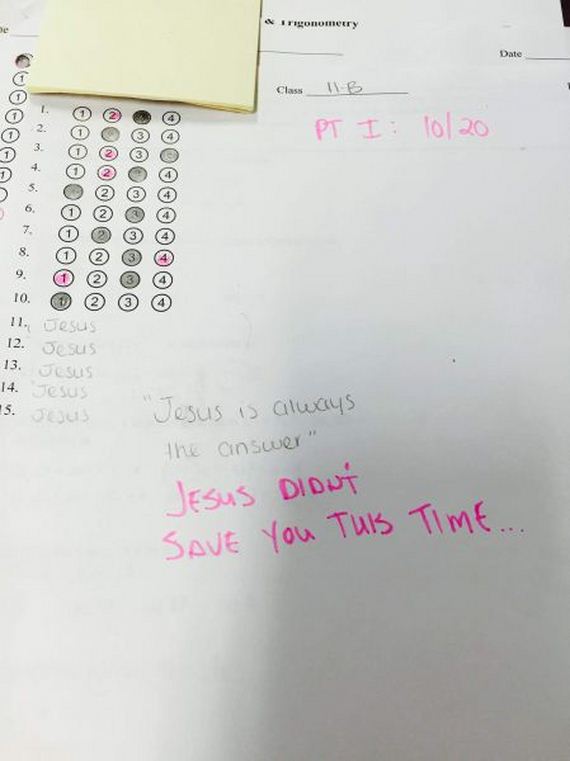 & Trigonometry
Date
Class 11-B
PT I: 10/20
1. 1 2 4
2. 1 3 4
3. 1 2 3
4. 1 2 4
5. 2 3 4
6. 1 2 3 4
7. 1 2 3 4
8. 1 2 3 4
9. 1 2 3 4
10. 1 2 3 4
11. Jesus
12. Jesus
13. Jesus
14. Jesus
15. Jesus
"Jesus is always
the answer"
JESUS DIDN'T
SAVE YOU THIS TIME...